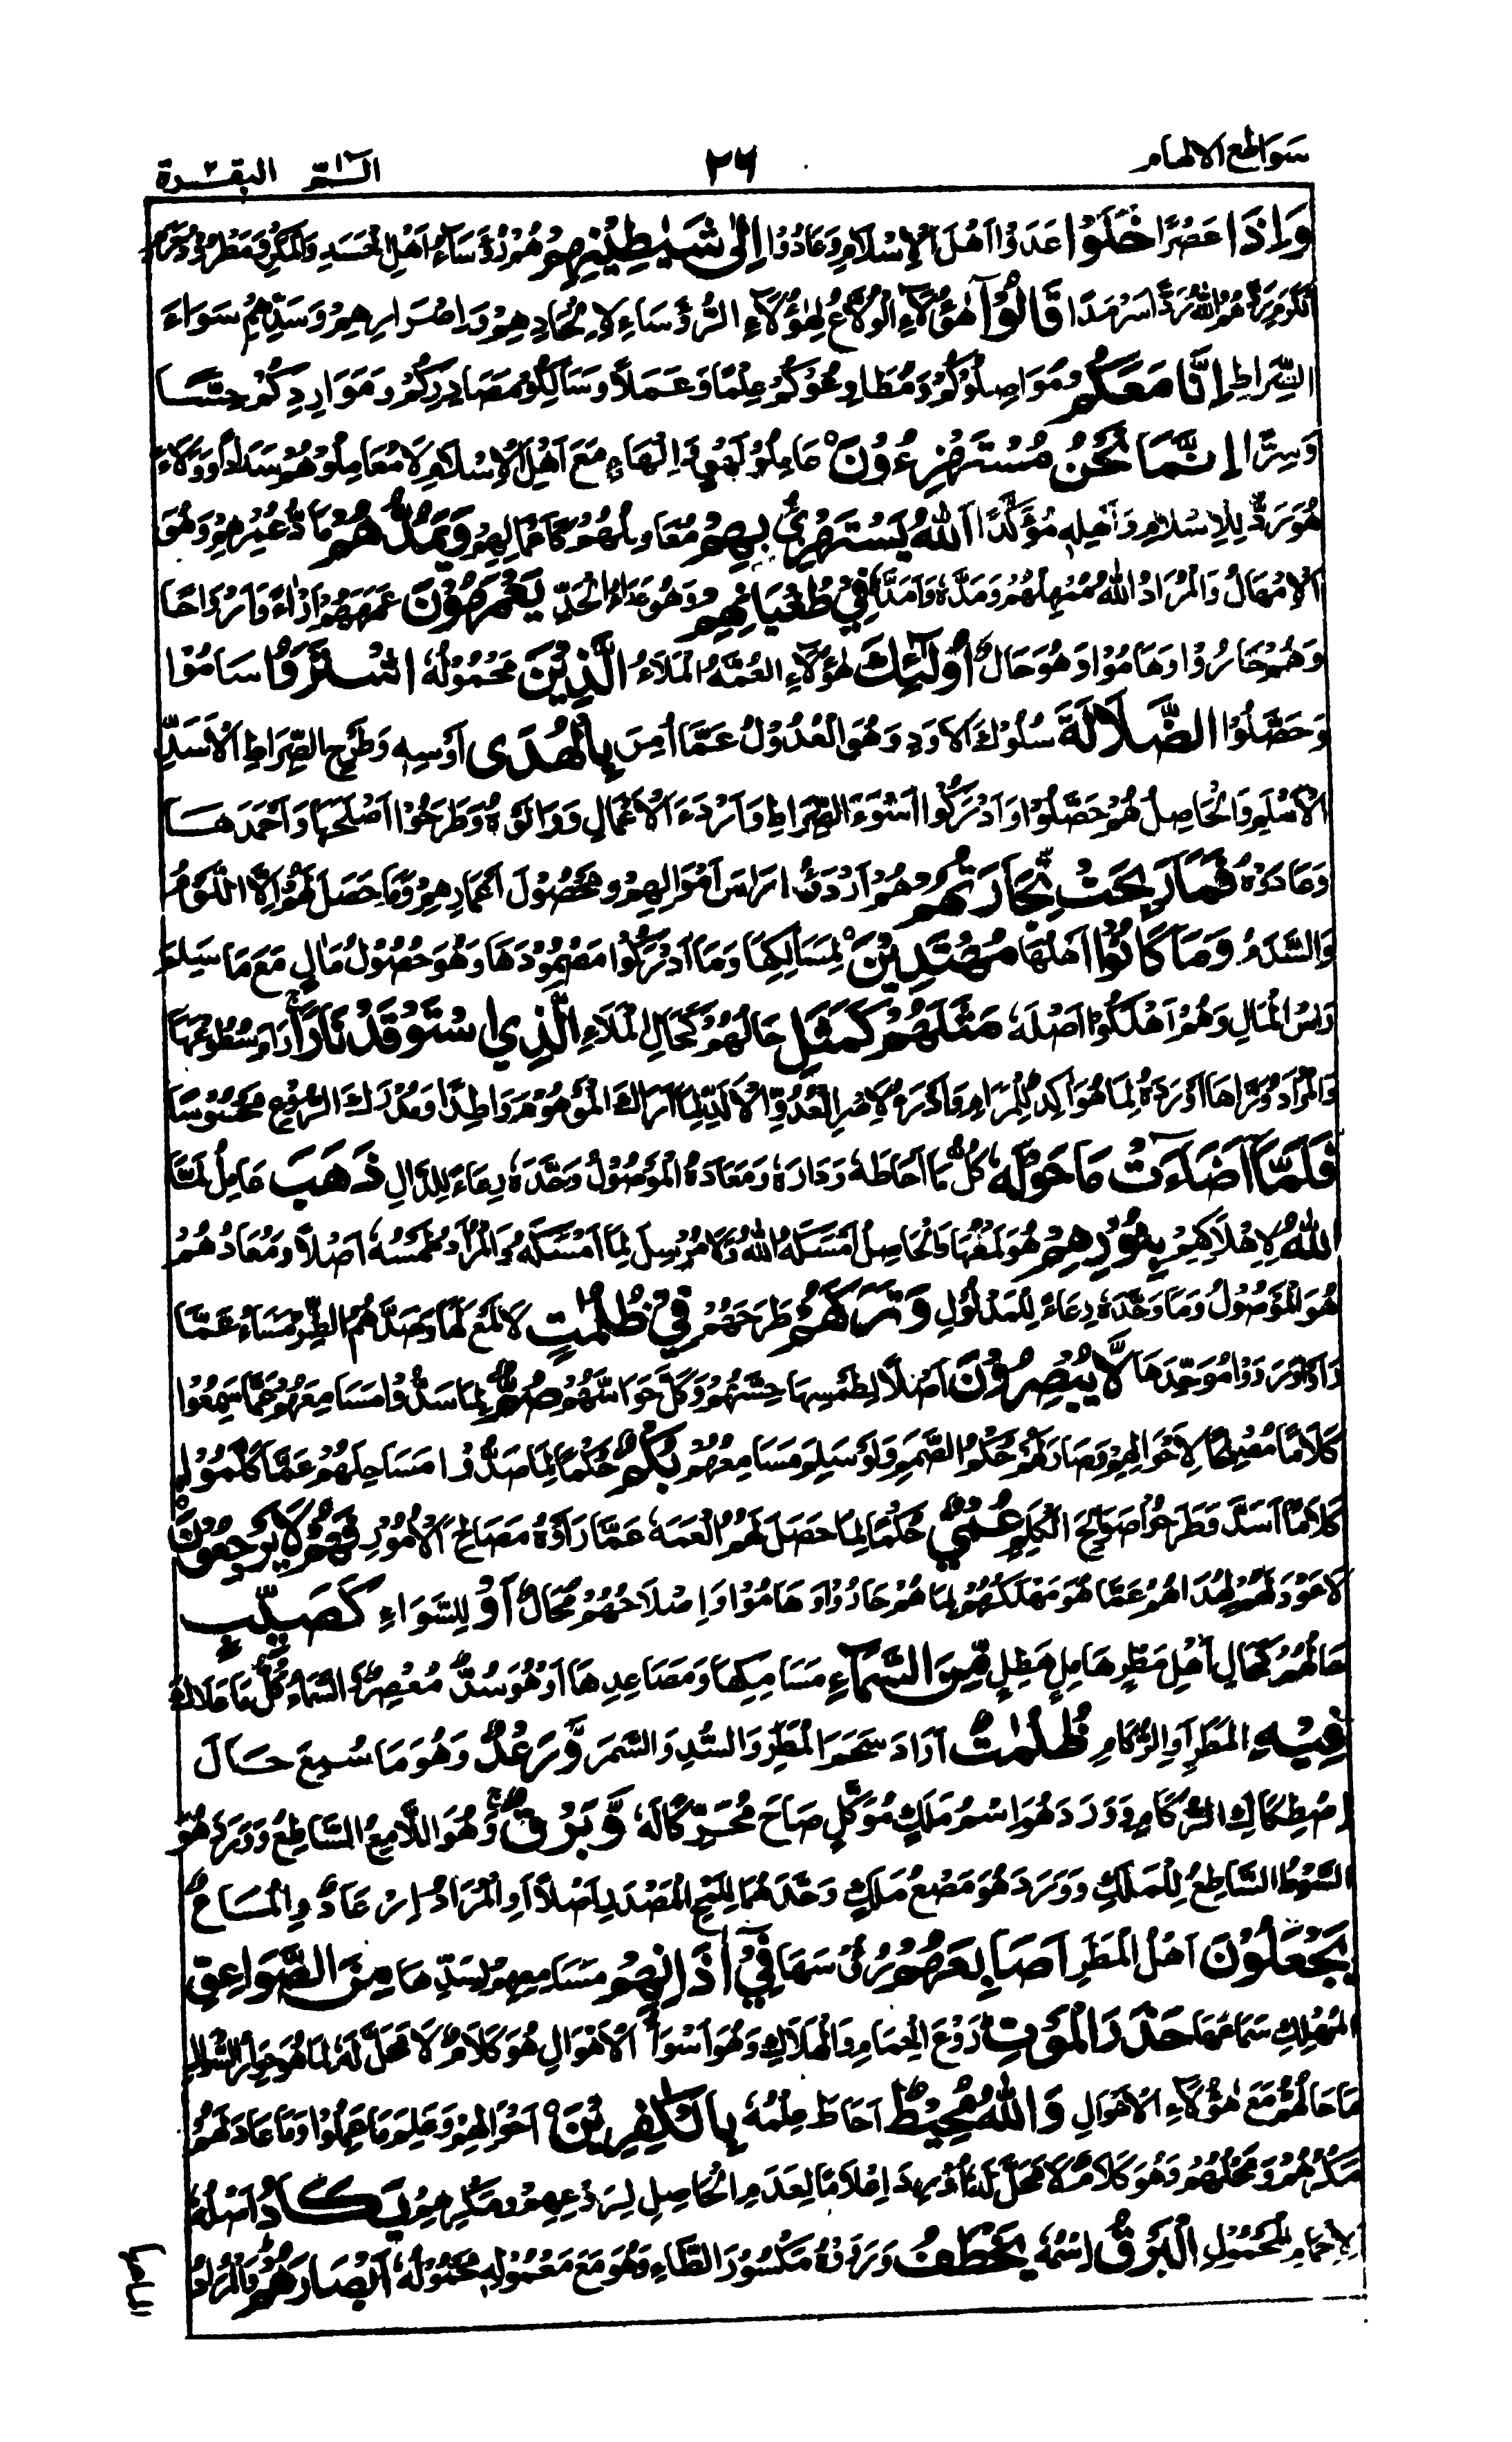 سواطع الالهام ٢٦ الٓمّٓ البقرة
وَاِذَا عَصْرًا خَلَوْا عَدَوْا اَهْلَ الْاِسْلَامِ وَعَادُوْا اِلٰى شَيٰطِيْنِهِمْ هُمْ رُؤَسَاءُ اَهْلِ الْحَسَدِ وَالْمَكْرِ
سَرْمَدًا قَالُوْٓا هٰؤُلَاءِ الْوُلَّاعُ لِهٰؤُلَاءِ الرُّؤَسَاءِ لِاِلْحَادِهِمْ وَاِصْرَارِهِمْ وَسَدِّهِمْ سَوَاءَ
الصِّرَاطِ اِنَّا مَعَكُمْ مُوَاصِلُوْكُمْ وَمُطَاوِعُوْكُمْ عِلْمًا وَعَمَلًا وَسَالِكُوْ مَصَادِرِكُمْ وَمَوَارِدِكُمْ حِسًّا
وَسِرًّا اِنَّمَا نَحْنُ مُسْتَهْزِءُوْنَ عَامِلُوْ لَهْوٍ وَاِلْهَاءٍ مَعَ اَهْلِ الْاِسْلَامِ لَا مُعَامِلُوْهُمْ سَدَادًا وَوَلَاءً
هُوَ رَدٌّ لِلْاِسْلَامِ وَاَهْلِهٖ مُؤَكِّدًا اَللّٰهُ يَسْتَهْزِئُ بِهِمْ مُعَادِلُهُمْ كَاَعْمَالِهِمْ وَيَمُدُّهُمْ مَادُّ عُمْرِهِمْ وَهُوَ
الْاِمْهَالُ وَالْمُرَادُ اللّٰهُ مُمْهِلُهُمْ وَمَدَّهٗ وَاَمَدَّهٗ فِيْ طُغْيَانِهِمْ وَهُوَ عَدَاءُ الْحَدِّ يَعْمَهُوْنَ عَمَهُهُمْ اٰرَاءً وَاَرْوَاحًا
وَهُمْ حَارُوْا وَهَامُوْا وَهُوَ حَالٌ اُولٰٓئِكَ هٰؤُلَاءِ الْعُمَّهُ الْمَلَاءُ الَّذِيْنَ مَحْمُوْلُهٗ اشْتَرَوُا سَامُوْا
وَحَصَّلُوا الضَّلَالَةَ سُلُوْكَ الْاَوَدِ وَهُوَ الْعُدُوْلُ عَمَّا اُمِرَ بِالْهُدٰى اَوْسِهٖ وَطَرْحِ الصِّرَاطِ الْاَسَدِّ
الْاَسْلَمِ وَالْحَاصِلُ هُمْ حَصَّلُوْا وَاَدْرَكُوْا اَسْوَءَ الصِّرَاطِ وَاَرْدَءَ الْاَعْمَالِ وَوَالَوْهُ وَطَرَحُوْا اَصْلَحَهَا وَاَحْمَدَهَا
وَعَادَوْهُ فَمَا رَبِحَتْ تِجَارَتُهُمْ هُمْ اَرْدَؤُا رَاْسَ اَمْوَالِهِمْ وَمَحْصُوْلَ اَعْمَارِهِمْ وَمَا حَصَلَ لَهُمْ اِلَّا اللَّوْمُ
وَالسَّدَمُ وَمَا كَانُوْا اَهْلُهَا مُهْتَدِيْنَ لِمَسَالِكِهَا وَمَا اَدْرَكُوْا مَصْمُوْدَهَا وَهُوَ حُصُوْلُ مَالٍ مَعَ مَا سَلِمَ
رَاْسُ الْمَالِ وَهُمْ اَهْلَكُوْا اَصْلَهٗ مَثَلُهُمْ كَمَثَلِ حَالُهُمْ كَحَالِ الْمَلَاءِ الَّذِي اسْتَوْقَدَ نَارًا رَامَ سُطُوْعَهَا
فَلَمَّا اَضَاءَتْ مَا حَوْلَهٗ كُلَّ مَا اَحَاطَهٗ وَدَارَهٗ وَمَعَادُهُ الْمَوْصُوْلُ وَحَّدَهٗ رِعَاءً لِلدَّالِ ذَهَبَ عَامِلُ لَمَّا
اللّٰهُ لِاِهْلَاكِهِمْ بِنُوْرِهِمْ هُوَ لَمْعُهَا وَالْحَاصِلُ اَمْسَكَهُ اللّٰهُ وَلَا مُرْسِلَ لِمَا اَمْسَكَهٗ وَالْمُرَادُ طَمَسَهٗ اَصْلًا وَمَعَادُهُمْ
هُوَ الْمَوْصُوْلُ وَمَا وَحَّدَهٗ رِعَاءً لِلْمَدْلُوْلِ وَتَرَكَهُمْ طَرَحَهُمْ فِيْ ظُلُمٰتٍ لَا لَمْعَ لَهَا وَصَدَّهُمُ الطِّرْمِسَاءُ عَمَّا
لَا يُبْصِرُوْنَ اَصْلًا لِطَمْسِهَا حِسَّهُمْ وَكَلَّ حَوَاسُّهُمْ صُمٌّ لِمَا سَدُّوْا مَسَامِعَهُمْ عَمَّا سَمِعُوْا
كَلَامًا مُصْلِحًا لِاَحْوَالِهِمْ وَصَارَ لَهُمْ حُكْمُ الصَّمَمِ وَلَوْ سَلِمَ مَسَامِعُهُمْ بُكْمٌ حُكْمًا لِمَا صَدُّوْا مَسَاحِلَهُمْ عَمَّا كَلَّمُوْا
كَلَامًا اَسَدَّ وَطَرَحُوْا صَوَالِحَ الْكَلِمِ عُمْيٌ حُكْمًا لِمَا حَصَلَ لَهُمُ الْعَمَهُ عَمَّا رَاَوْهُ مَصَالِحَ الْاُمُوْرِ فَهُمْ لَا يَرْجِعُوْنَ
لَا عَوْدَ لَهُمْ لِهُدَاهُمْ عَمَّا هُوَ مَهْلَكُهُمْ لِمَا هُمْ حَارُوْا وَهَامُوْا وَاِصْلَاحُهُمْ مُحَالٌ اَوْ لِلسَّوَاءِ كَصَيِّبٍ
حَالُهُمْ كَحَالِ اَهْلِ مَطَرٍ هَامِلٍ مَطِلٍ مِّنَ السَّمَاءِ مَسَامِكِهَا وَمَصَاعِدِهَا اَوْ هُوَ سُدٌّ مُعْصِرٌ وَالسَّمَاءُ كُلُّ مَا عَلَاكَ
فِيْهِ الْمَطَرِ اَوِ الرُّكَامِ ظُلُمٰتٌ اَرَادَ سَحَمَ الْمَطَرِ وَالسُّدِّ وَالسَّمَرَ وَّرَعْدٌ وَهُوَ مَا سُمِعَ حَالَ
اصْطِكَاكِ الرُّكَامِ وَوَرَدَ هُوَ اسْمُ مَلَكٍ مُوَكَّلٍ صَاحَ مُحَرِّكًا لَهٗ وَّبَرْقٌ وَهُوَ اللَّامِعُ السَّاطِعُ وَوَرَدَ هُوَ
السَّوْطُ السَّاطِعُ لِلْمَلَكِ وَوَرَدَ هُوَ مَصْعُ مَلَكٍ وَحَّدَهُمَا لِلَمْحِ الْمَصْدَرِ اَصْلًا اَوِ الْمُرَادُ اِرْعَادٌ وَاِلْمَاعٌ
يَجْعَلُوْنَ اَهْلُ الْمَطَرِ اَصَابِعَهُمْ رُءُوْسَهَا فِيْ اٰذَانِهِمْ مَسَامِعِهِمْ لِسَدِّهَا مِنَ الصَّوَاعِقِ
الْمُهْلِكِ سَمَاعُهَا حَذَرَ الْمَوْتِ رَوْعَ الْحِمَامِ وَالْهَلَاكِ وَهُوَ اَسْوَاُ الْاَهْوَالِ هُوَ كَلَامٌ لَا مَحَلَّ لَهٗ لِمَا هُوَ حِوَارُ السُّؤَالِ
مَا حَالُهُمْ مَعَ هٰؤُلَاءِ الْاَهْوَالِ وَاللّٰهُ مُحِيْطٌ اَحَاطَ عِلْمُهٗ بِالْكٰفِرِيْنَ اَحْوَالَهُمْ وَعَلِمَ مَا عَمِلُوْا وَمَا عَادَ لَهُمْ
مَكْرُهُمْ وَمَحْلُهُمْ وَهُوَ كَلَامٌ لَا مَحَلَّ لَهٗ اُوْرِدَ اِعْلَامًا لِعَدَمِ الْحَاصِلِ لِرَدْعِهِمْ وَمَكْرِهِمْ يَكَادُ اَصْلُهُ
الْبَرْقُ اسْمُهٗ يَخْطَفُ وَرَوَوْهُ مَكْسُوْرَ الطَّاءِ وَهُوَ مَعَ مَعْمُوْلِهٖ مَحْمُوْلُهٗ اَبْصَارَهُمْ وَالْمُرَادُ